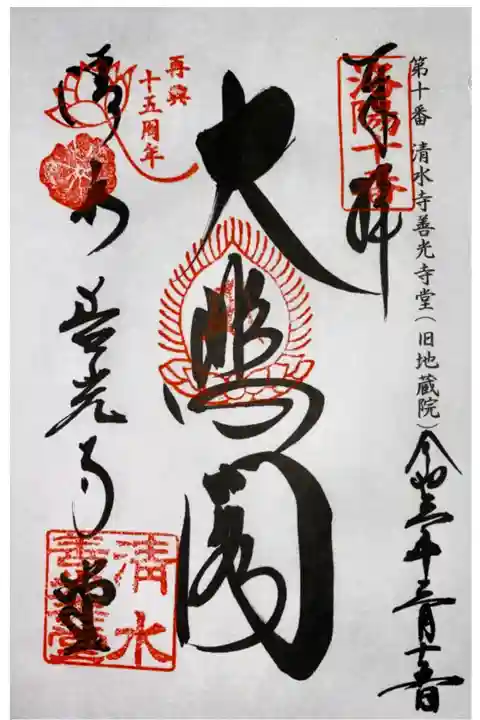 第十番 清水寺善光寺堂(旧地蔵院)
令和三年三月十五日
奉拝
洛陽十番
大悲閣
再興
十五周年
清水
善光寺堂
清水
善光寺堂